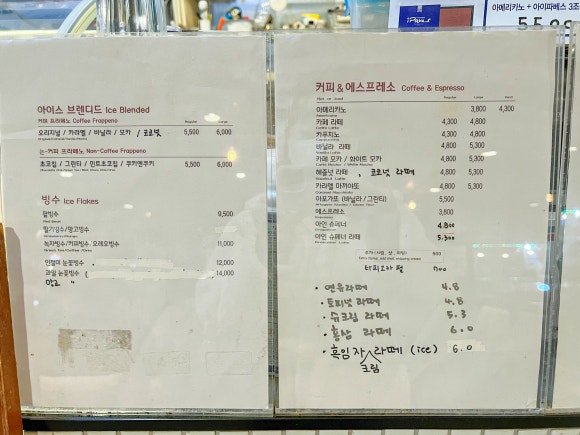 아메리카노 + 아이파베스 3조
아이스 브렌디드 Ice Blended
커피 프라페노 Coffee Frappeno Regular Large
오리지널 / 카라멜 / 바닐라 / 모카 / 코코넛 5,500 6,000
논-커피 프라페노 Non-Coffee Frappeno
초코칩 / 그린티 / 민트초코칩 / 쿠키앤쿠키 5,500 6,000
빙수 Ice Flakes
팥빙수 9,500
Red Bean
딸기빙수/망고빙수
녹차빙수/커피빙수, 오레오빙수 11,000
인절미 눈꽃빙수 12,000
과일 눈꽃빙수 14,000
망고 "
커피 & 에스프레소 Coffee & Espresso
Regular Large
아메리카노 3,800 4,300
Americano
카페 라떼 4,300 4,800
Caffe Latte
카푸치노 4,300 4,800
Cappuccino
바닐라 라떼 4,800 5,300
Vanilla Latte
카페 모카 / 화이트 모카 4,800 5,300
헤즐넛 라떼, 코코넛 라떼 4,800 5,300
Hazelnut Latte
카라멜 마끼아또 4,800 5,300
Caramel Macchiato
아포가또 (바닐라 / 그린티) 5,500
에스프레소 3,800
Espresso
아인 슈페너 4.800
아인 슈페너 라떼 5.300
500
타피오카 펄 700
· 연유라떼 4.8
· 토피넛 라떼 4.8
· 슈크림 라떼 5.3
· 홍삼 라떼 6.0
· 흑임자 크림 라떼 (ice) 6.0